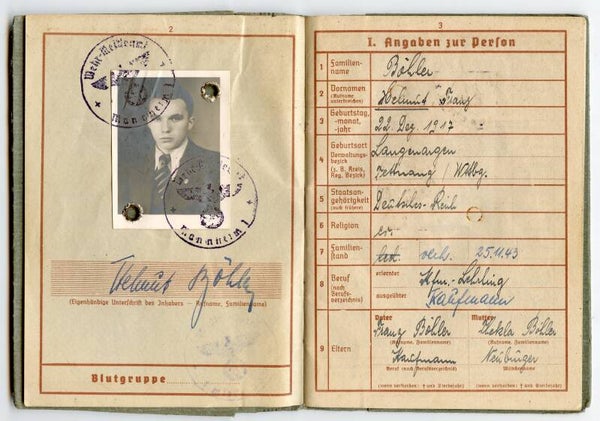 2
Wehr-Meldeamt
Mannheim 1
Wehr-Meldeamt
Mannheim 1
Helmut Böhler
(Eigenhändige Unterschrift des Inhabers — Rufname, Familienname)
Blutgruppe
3
I. Angaben zur Person
1 Familien-
name
Böhler
2 Vornamen
(Rufname
unterstreichen)
Helmut Franz
3 Geburtstag,
-monat,
-jahr
22. Dez. 1917
4 Geburtsort
Verwaltungs-
bezirk
(z. B. Kreis,
Reg. Bezirk)
Langenargen
Tettnang / Wttbg.
5 Staatsan-
gehörigkeit
(auch frühere)
Deutsches Reich
6 Religion
ev.
7 Familien-
stand
led. verh. 25.11.43
8 Beruf
(nach
Berufs-
verzeichnis)
erlernter
Kfm.-Lehrling
ausgeübter
Kaufmann
9 Eltern
Vater Mutter
Franz Böhler Thekla Böhler
(Rufname, Familienname) (Rufname, Familienname)
Kaufmann Neubürger
Beruf (nach Berufsverzeichnis) Mädchenname
(wenn verstorben: † und Sterbejahr) (wenn verstorben: † und Sterbejahr)